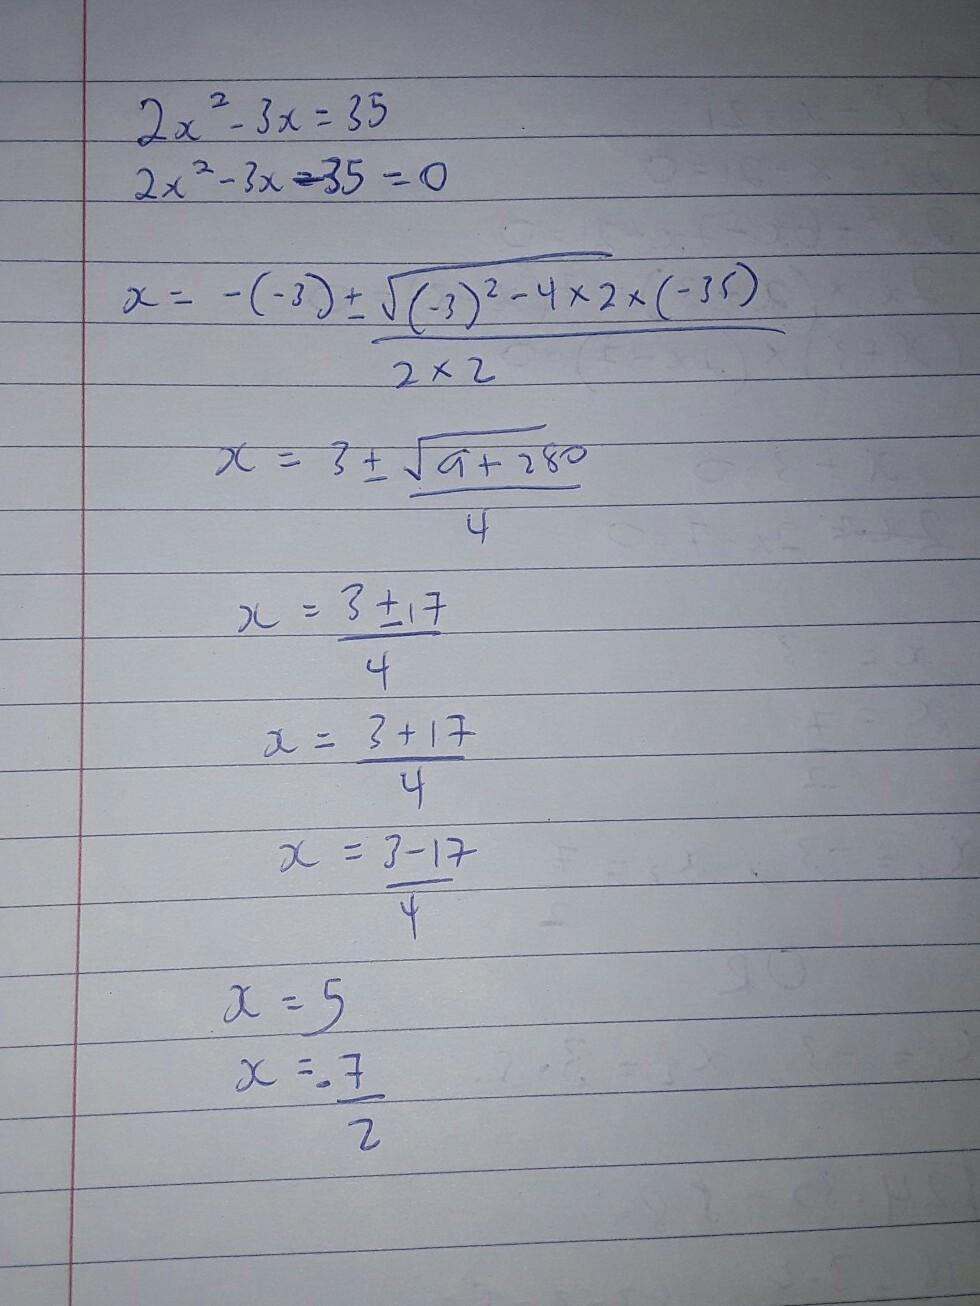 2x² - 3x = 35
2x² - 3x - 35 = 0
x = -(-3) ± √(-3)² - 4 × 2 × (-35)
2 × 2
x = 3 ± √9 + 280
4
x = 3 ± 17
4
x = 3 + 17
4
x = 3 - 17
4
x = 5
x = -7
2